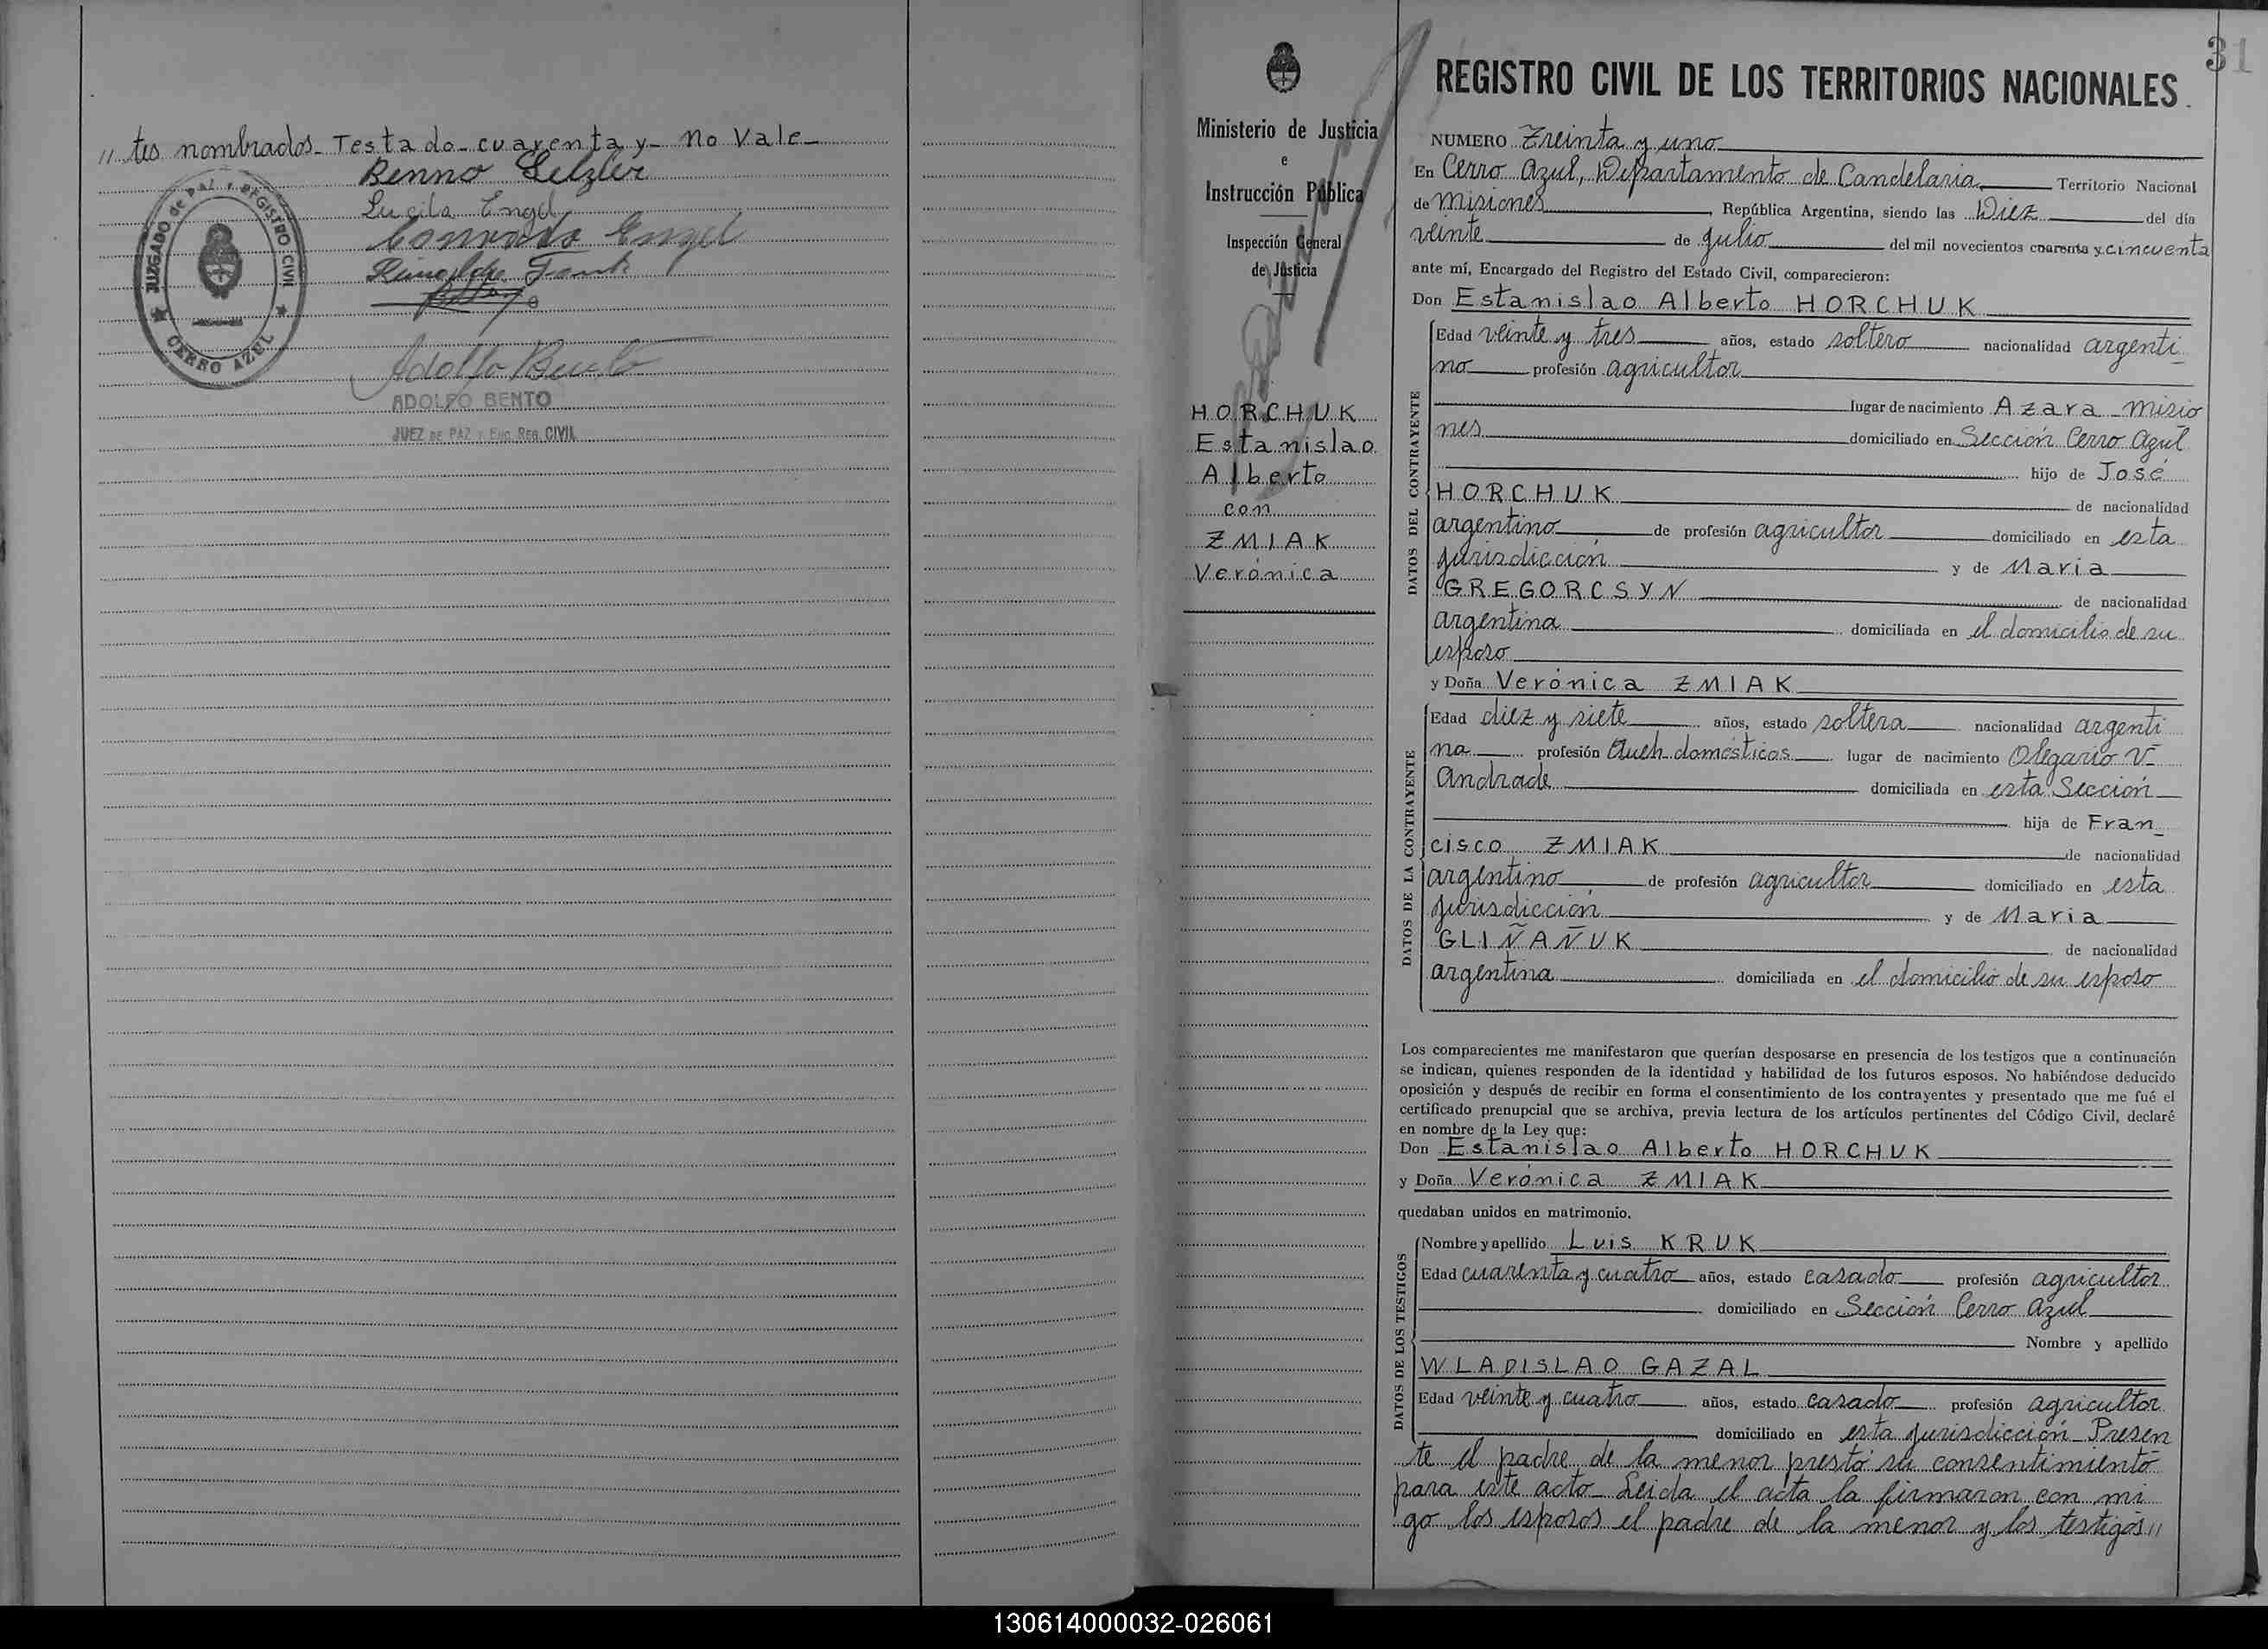 // tes nombrados_ Testado_ cuarenta y_ no vale_
Benno
Lucila Engel
Conrado Engel
JUZGADO de PAZ Y REGISTRO CIVIL
CERRO AZUL
Adolfo Bento
ADOLFO BENTO
JUEZ DE PAZ Y ENC. REG. CIVIL
Ministerio de Justicia
e
Instrucción Pública
Inspección General
de Justicia
HORCHUK
Estanislao
Alberto
con
ZMIAK
Verónica
31
REGISTRO CIVIL DE LOS TERRITORIOS NACIONALES
NUMERO Treinta y uno
En Cerro Azul, Departamento de Candelaria, Territorio Nacional
de Misiones, República Argentina, siendo las Diez del día
veinte de julio del mil novecientos cuarenta y cincuenta
ante mí, Encargado del Registro del Estado Civil, comparecieron:
Don Estanislao Alberto HORCHUK
DATOS DEL CONTRAYENTE
Edad veinte y tres años, estado soltero nacionalidad argenti_
no profesión agricultor
lugar de nacimiento Azara_ Misio
nes domiciliado en Sección Cerro Azul
hijo de José
HORCHUK de nacionalidad
argentino de profesión agricultor domiciliado en esta
jurisdicción y de Maria
GREGORCSYN de nacionalidad
argentina domiciliada en el domicilio de su
esposo
y Doña Verónica ZMIAK
DATOS DE LA CONTRAYENTE
Edad diez y siete años, estado soltera nacionalidad argenti
na profesión Queh. domésticos lugar de nacimiento Olegario V_
Andrade domiciliada en esta Sección
hija de Fran_
cisco ZMIAK de nacionalidad
argentino de profesión agricultor domiciliado en esta
jurisdicción y de Maria
GLIÑAÑUK de nacionalidad
argentina domiciliada en el domicilio de su esposo
Los comparecientes me manifestaron que querían desposarse en presencia de los testigos que a continuación
se indican, quienes responden de la identidad y habilidad de los futuros esposos. No habiéndose deducido
oposición y después de recibir en forma el consentimiento de los contrayentes y presentado que me fué el
certificado prenupcial que se archiva, previa lectura de los artículos pertinentes del Código Civil, declaré
en nombre de la Ley que:
Don Estanislao Alberto HORCHUK
y Doña Verónica ZMIAK
quedaban unidos en matrimonio.
DATOS DE LOS TESTIGOS
Nombre y apellido Luis KRUK
Edad cuarenta y cuatro años, estado casado profesión agricultor
domiciliado en Sección Cerro Azul
Nombre y apellido
WLADISLAO GAZAL
Edad veinte y cuatro años, estado casado profesión agricultor
domiciliado en esta jurisdicción_ Presen
te el padre de la menor prestó su consentimiento
para este acto_ Leida el acta la firmaron con mi
go los esposos el padre de la menor y los testigos //
130614000032-026061